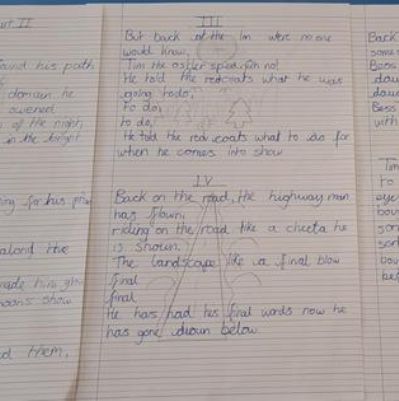 urt II
ound his path
domain he
owened
of the night,
in the bright
ing for his
along the
made him
moons show
d them.
III
But back at the Inn were no one
would know,
Tim the osfler spied
He told the redcoats what he was
going todo,
To do,
to do,
He told the red coats what to do for
when he comes into show
IV
Back on the road, the highway man
has flown,
riding on the road like a cheeta he
is shown.
The landscape like a final blow
final
final
He hars had his final words now he
has gone down below
Back
some
Boos
dow
dow
Bess
with
Tim
To
eye
bou
son
son
bou
be